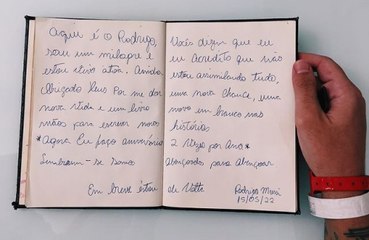 Aqui é o Rodrigo,
sou um milagre e
estou vivo
Obrigado Deus Por me dar
nova vida e um livro
mãos para escrever novas
*Agora Eu faço aniversário
Lembram-se
Vocês dizem que eu
eu Acredito que não
estou assimilando tudo,
uma nova chance, uma
nova em branco nas
histórias
2 vezes por Ano*
abençoados para abençoar
Em breve estou de Volta
Rodrigo Mussi
15/05/22